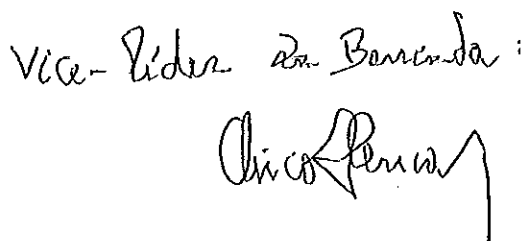 Vice-Líder da Bancada:
Chico